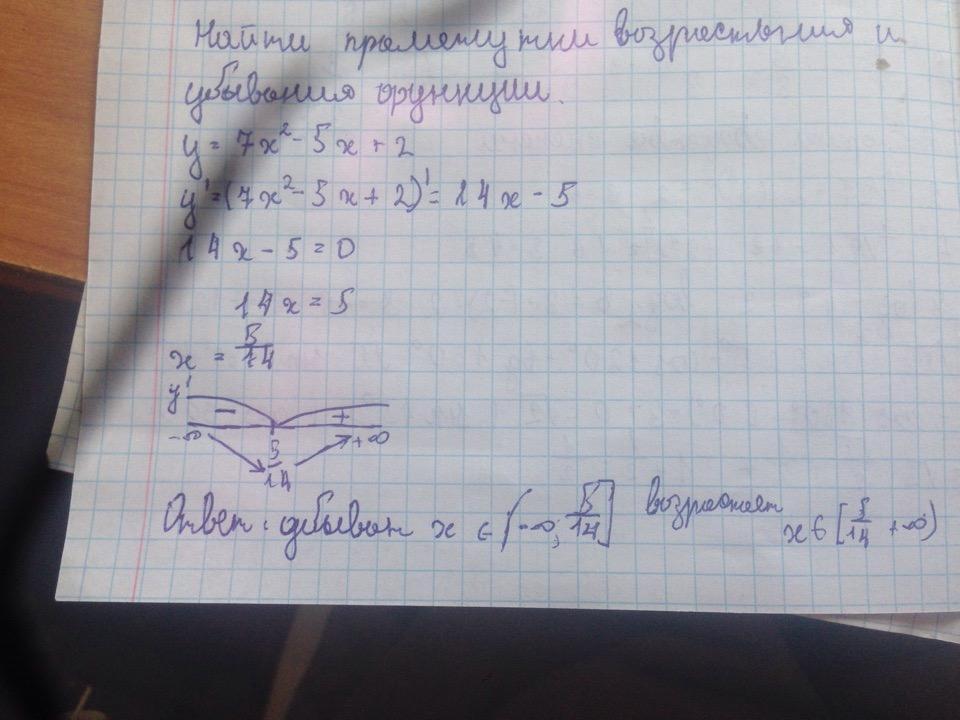 Найти промежутки возрастания и
убывания функции.
y = 7x² - 5x + 2
y' = (7x² - 5x + 2)' = 14x - 5
14x - 5 = 0
14x = 5
x = 5/14
y' - +
-∞ 5/14 +∞
Ответ: убывает x ∈ (-∞; 5/14] возрастает x ∈ [5/14 +∞)